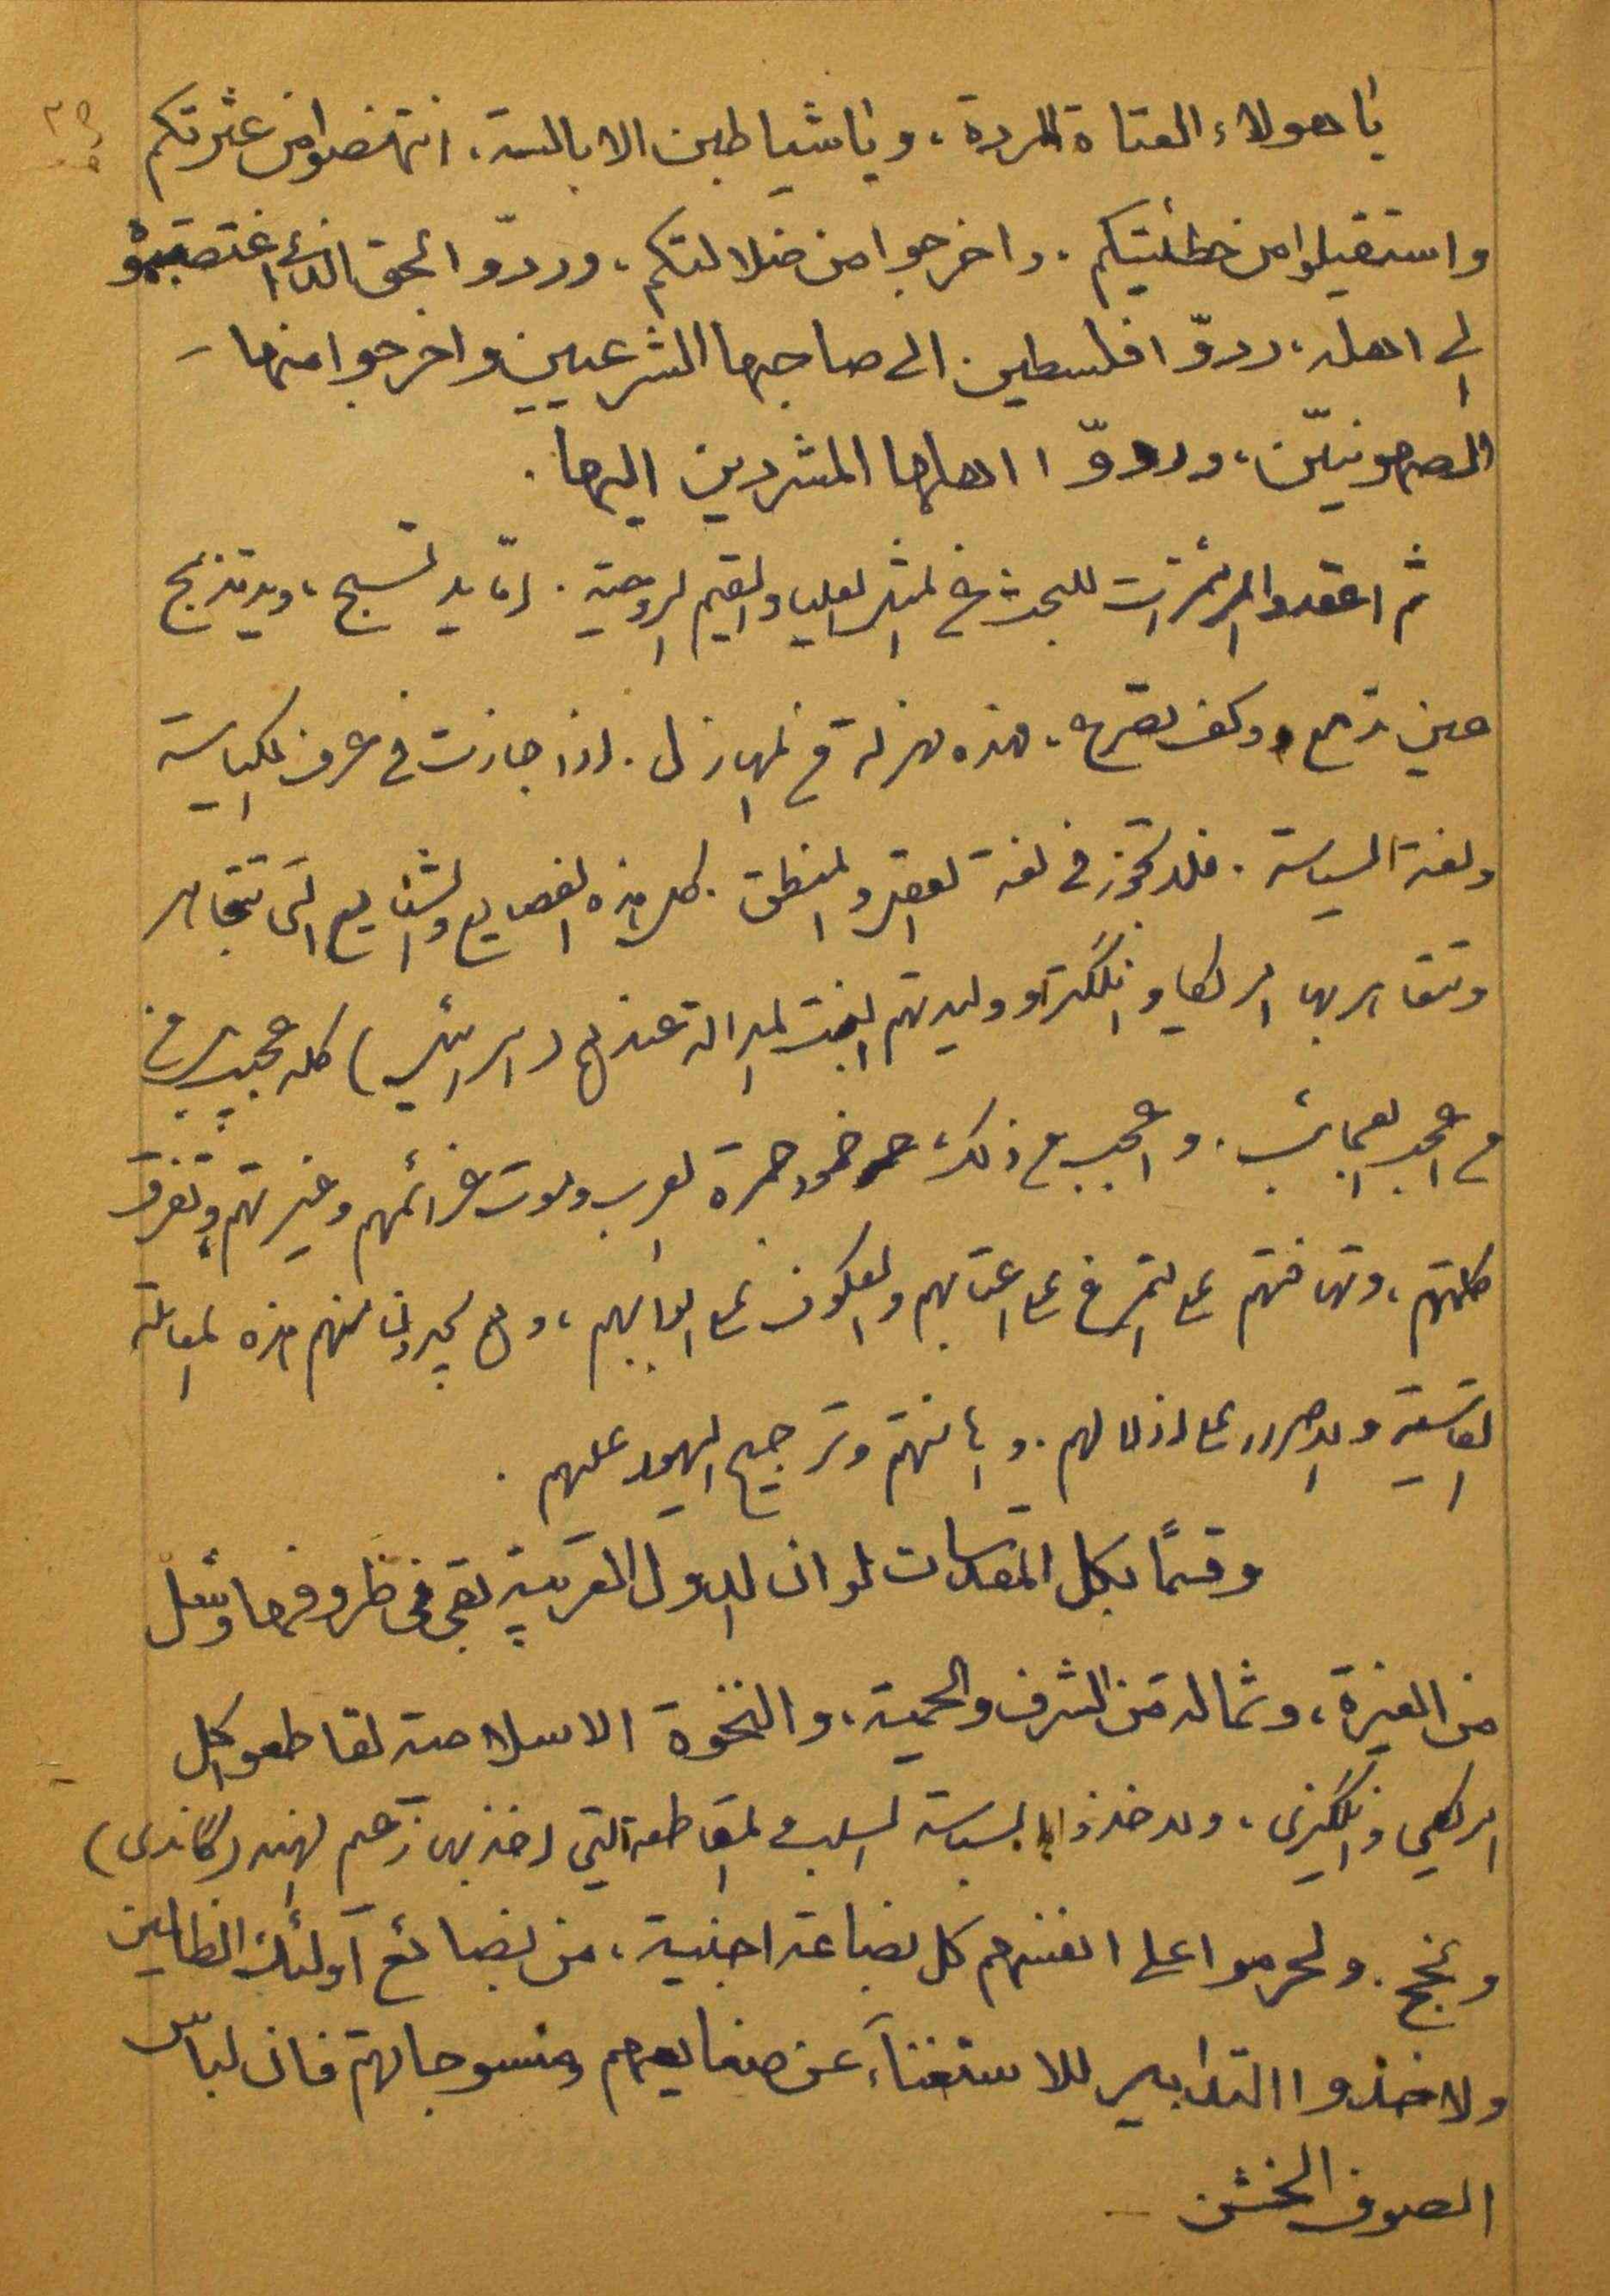 يا هولاء العتاة المردة، ويا شياطين الابالسة. انتهضوا من عثرتكم
واستقيلوا من خطئيتكم. واخرجوا من ضلالتكم، وردّوا الحق الذي اغتصبتموه
الى اهله، ردوّا فلسطين الى صاحبها الشرعيين واخرجوا منها
الصهونيّن، وردوّا اهلها المشردين اليها.
ثم اعقدوا المرئتمرات للبحث في المثل العليا والقيم الروحية. امّا يد تسبح، ويد تذبح
عين تدمع وكف تصرع، فهذه مهزلة من المهازل. اذا جازت في عرف الكياسة
ولغة السياسة. فلا تجوز في لغة العقل والمنطق. كل هذه الفضايع والشنايع التي تتجاهر
وتتفاخر بها امريكا وانلگترا ووليدتهم البنت المدللة عندهم (اسرائيل) كله عجيب
من اعجب العجائب. واعجب من ذلك، خمود جمرة العرب وموت عزائمهم وغيرتهم وتفرق
كلمتهم، وتهافتهم على التمرغ على اعتابهم والعكوف على ابوابهم، وهم يجدون منهم هذه المعاملة
القاسية والاصرار على اذلالهم. واهانتهم وترجيح اليهود عليهم.
وقسمًا بكل المقدسات لو ان للدول العربية بقى في ظروفها وشل
من الغيرة، وثمالة من الشرف والحمية، والنخوة الاسلامية لقاطعوا كل
امريكي وانگليزى، ولاخذوا بسياسة السلب والمقاطعة التي اخذ بها زعيم الهند (گاندى)
ونجح. ولحرموا على انفسهم كل بضاعة اجنبية، من بضائع اولئك الظالمين
ولاخذوا التدابير للاستغناء عن صنايعهم ومنسوجاتهم فان لباس
الصوف الخشن